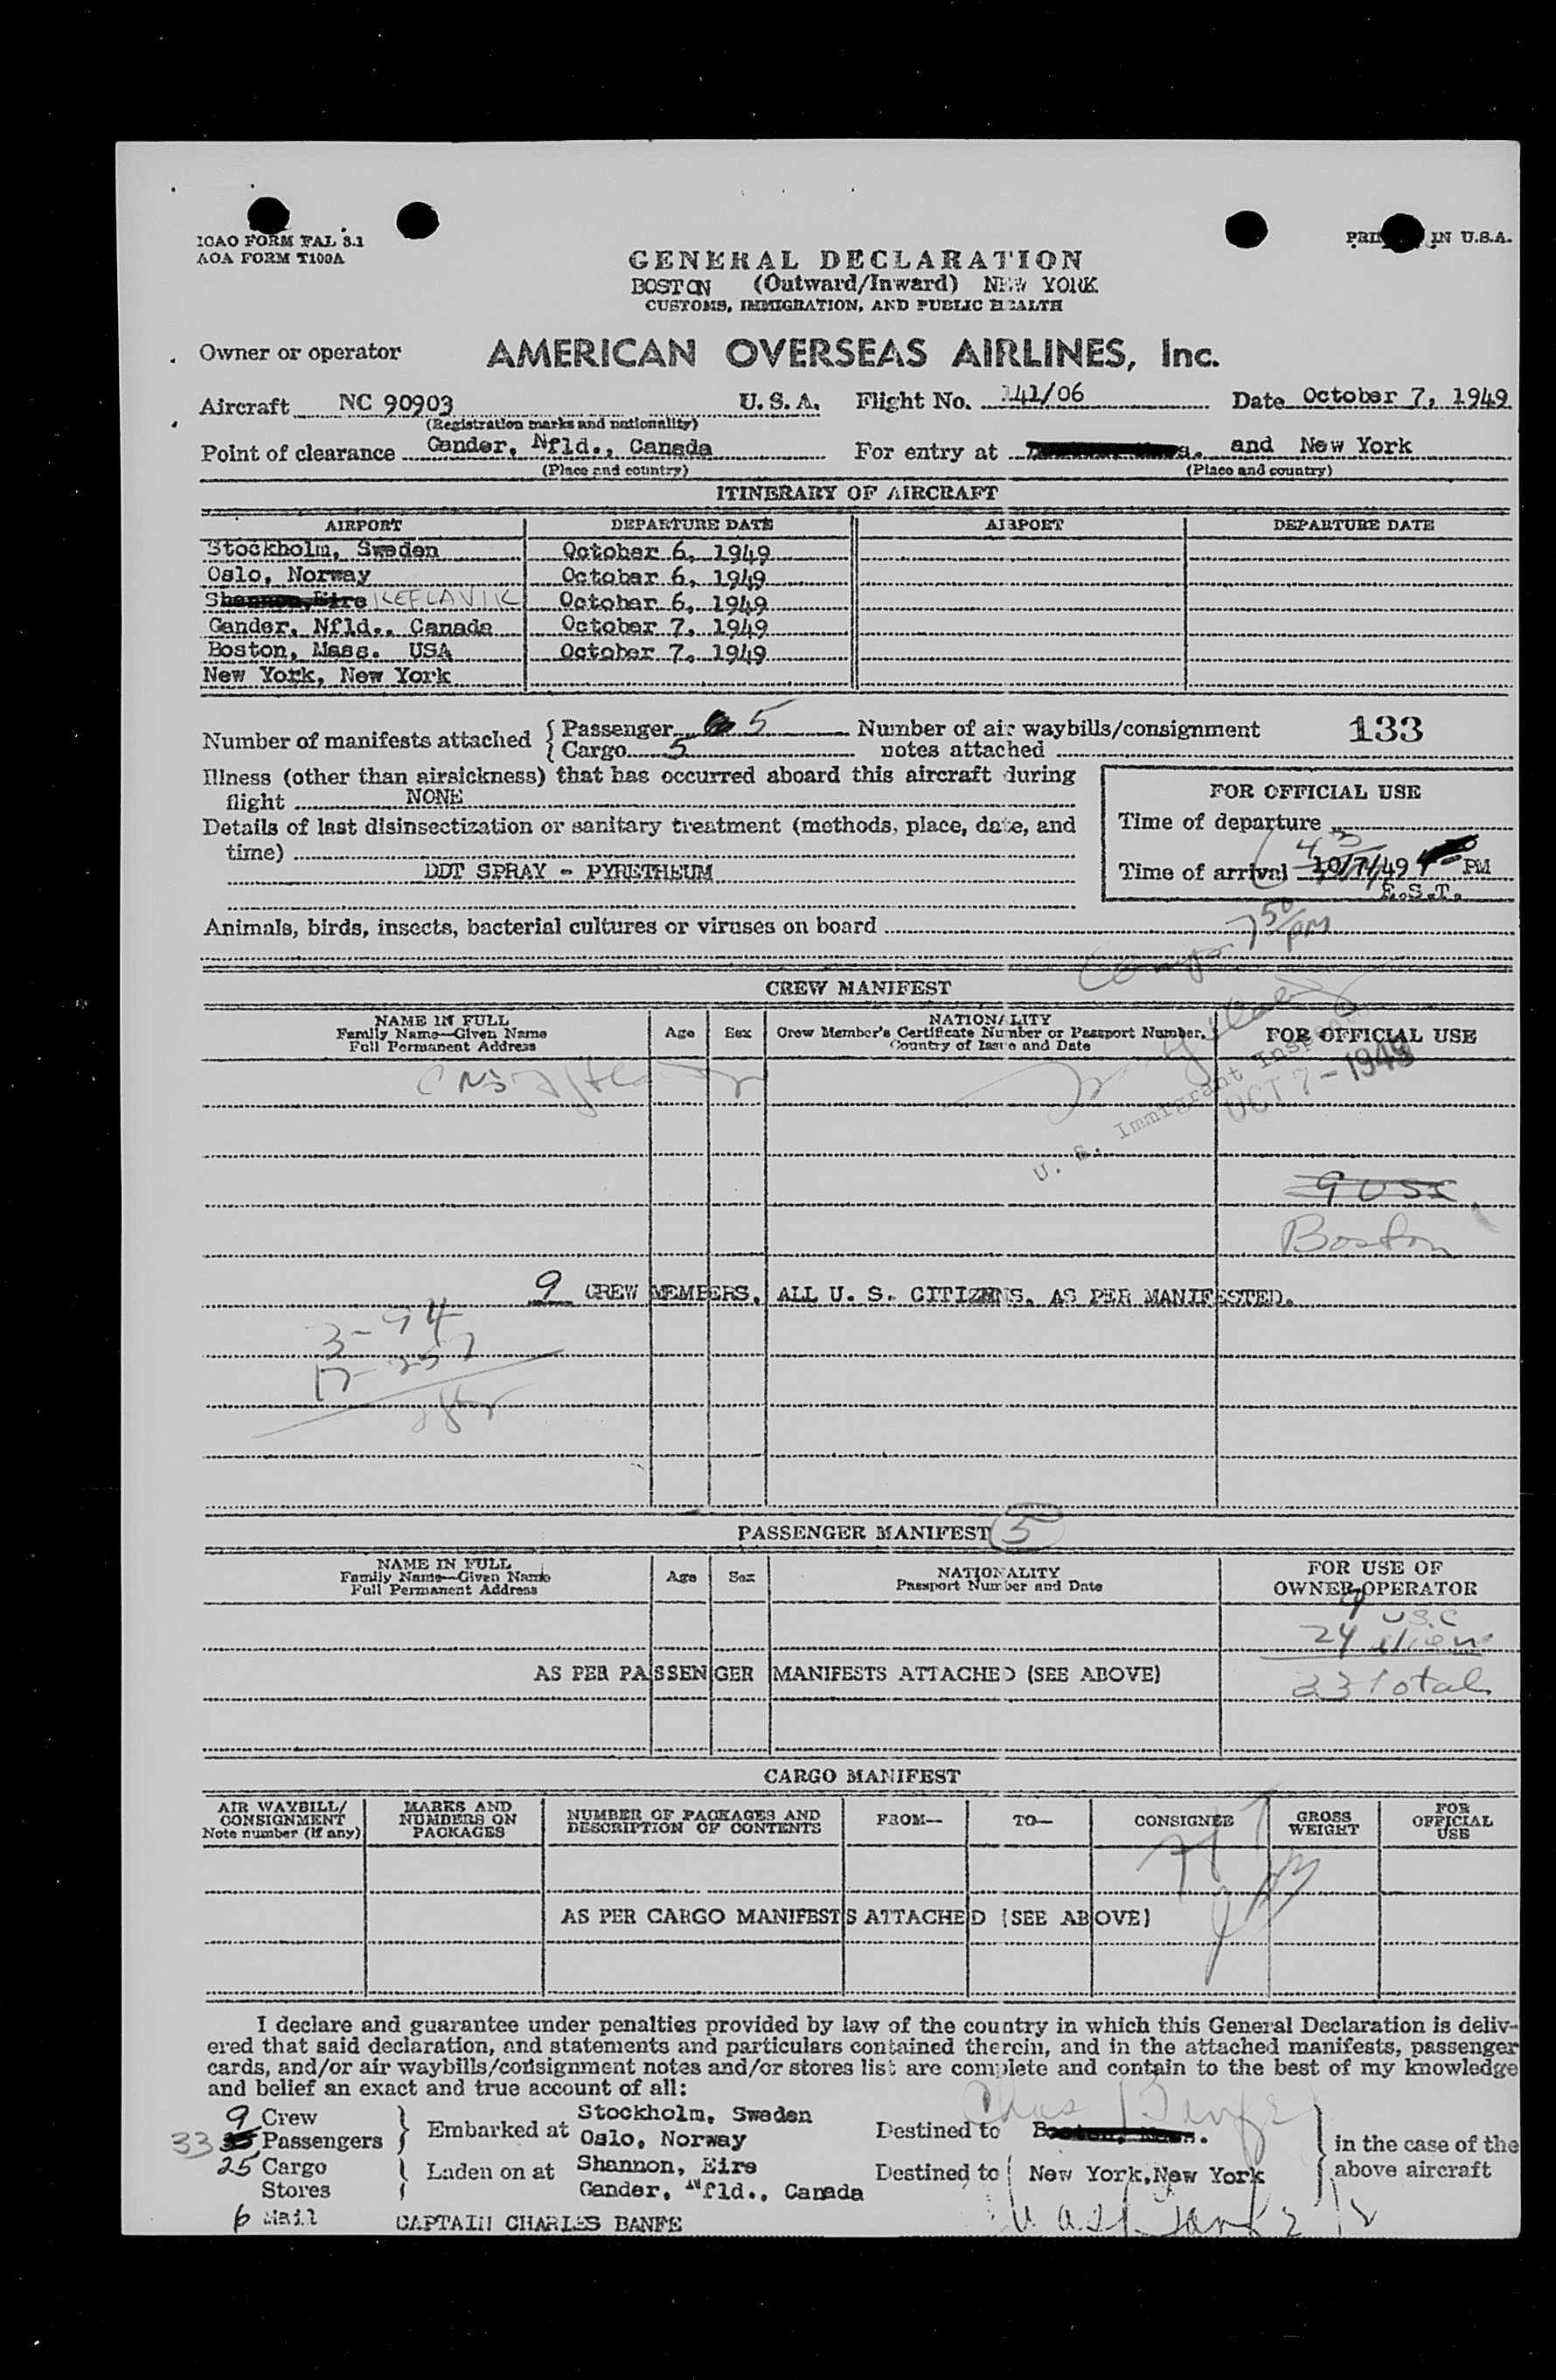 ICAO FORM FAL 3.1
AOA FORM T100A
PRI IN U.S.A.
GENERAL DECLARATION
BOSTON (Outward/Inward) NEW YORK
CUSTOMS, IMMIGRATION, AND PUBLIC HEALTH
Owner or operator AMERICAN OVERSEAS AIRLINES, Inc.
Aircraft NC 90903 U.S.A. Flight No. 141/06 Date October 7, 1949
(Registration marks and nationality)
Point of clearance Gander, Nfld., Canada For entry at and New York
(Place and country) (Place and country)
ITINERARY OF AIRCRAFT
AIRPORT DEPARTURE DATE AIRPORT DEPARTURE DATE
Stockholm, Sweden October 6, 1949
Oslo, Norway October 6, 1949
Shannon, Eire KEFLAVIK October 6, 1949
Gander, Nfld., Canada October 7, 1949
Boston, Mass. USA October 7, 1949
New York, New York
Number of manifests attached { Passenger 5 Number of air waybills/consignment 133
Cargo 5 notes attached
Illness (other than airsickness) that has occurred aboard this aircraft during
flight NONE
Details of last disinsectization or sanitary treatment (methods, place, date, and
time)
DDT SPRAY - PYRETHEUM
FOR OFFICIAL USE
Time of departure
Time of arrival 10/7/49 PM
E.S.T.
Animals, birds, insects, bacterial cultures or viruses on board
7 50 PM
CREW MANIFEST
NAME IN FULL
Family Name—Given Name
Full Permanent Address
Age Sex
NATIONALITY
Crew Member's Certificate Number or Passport Number.
Country of Issue and Date
FOR OFFICIAL USE
U. S. Immigrant Inspector
OCT 7 - 1949
Boston
9 CREW MEMBERS, ALL U. S. CITIZENS, AS PER MANIFESTED.
3-94
17-257
PASSENGER MANIFEST 5
NAME IN FULL
Family Name—Given Name
Full Permanent Address
Age Sex
NATIONALITY
Passport Number and Date
FOR USE OF
OWNER-OPERATOR
9 U.S.C
24 alien
33 Total
AS PER PASSENGER MANIFESTS ATTACHED (SEE ABOVE)
CARGO MANIFEST
AIR WAYBILL/
CONSIGNMENT
Note number (if any)
MARKS AND
NUMBERS ON
PACKAGES
NUMBER OF PACKAGES AND
DESCRIPTION OF CONTENTS
FROM— TO— CONSIGNEE
GROSS
WEIGHT
FOR
OFFICIAL
USE
AS PER CARGO MANIFESTS ATTACHED (SEE ABOVE)
I declare and guarantee under penalties provided by law of the country in which this General Declaration is deliv-
ered that said declaration, and statements and particulars contained therein, and in the attached manifests, passenger
cards, and/or air waybills/consignment notes and/or stores list are complete and contain to the best of my knowledge
and belief an exact and true account of all:
9 Crew
33 Passengers
25 Cargo
Stores
6 Mail
Embarked at Stockholm, Sweden
Oslo, Norway
Laden on at Shannon, Eire
Gander, Nfld., Canada
Chas Banfe
Destined to Boston, Mass.
Destined to New York, New York
in the case of the
above aircraft
CAPTAIN CHARLES BANFE